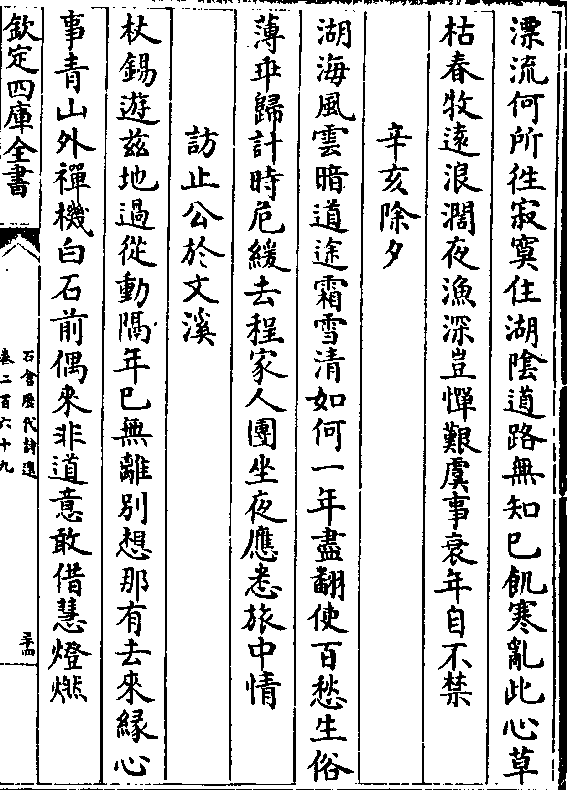 漂流何所往寂寞住湖陰道路無知已飢寒亂此心草
枯春牧遠浪濶夜漁深豈憚艱虞事衰年自不禁
辛亥除夕
湖海風雲暗道途霜雪清如何一年盡翻使百愁生俗
薄乖歸計時危緩去程家人團坐夜應悉旅中情
訪止公於文溪
杖錫遊兹地過從動隔年已無離别想那有去來緣心
事青山外禪機白石前偶來非道意敢借慧燈燃
欽定四庫全書
石倉歴代詩選
卷二百六十九